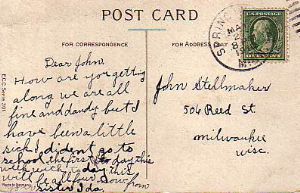 POST CARD
FOR CORRESPONDENCE
FOR ADDRESS ONLY
Dear John,
How are you getting
along we are all
fine and dandy but I
have been a little
sick I dident go to
school the first to day this
will be all for now
from
Sister Ida
John Stellmaker
504 Reed St.
milwaukee
Wisc.